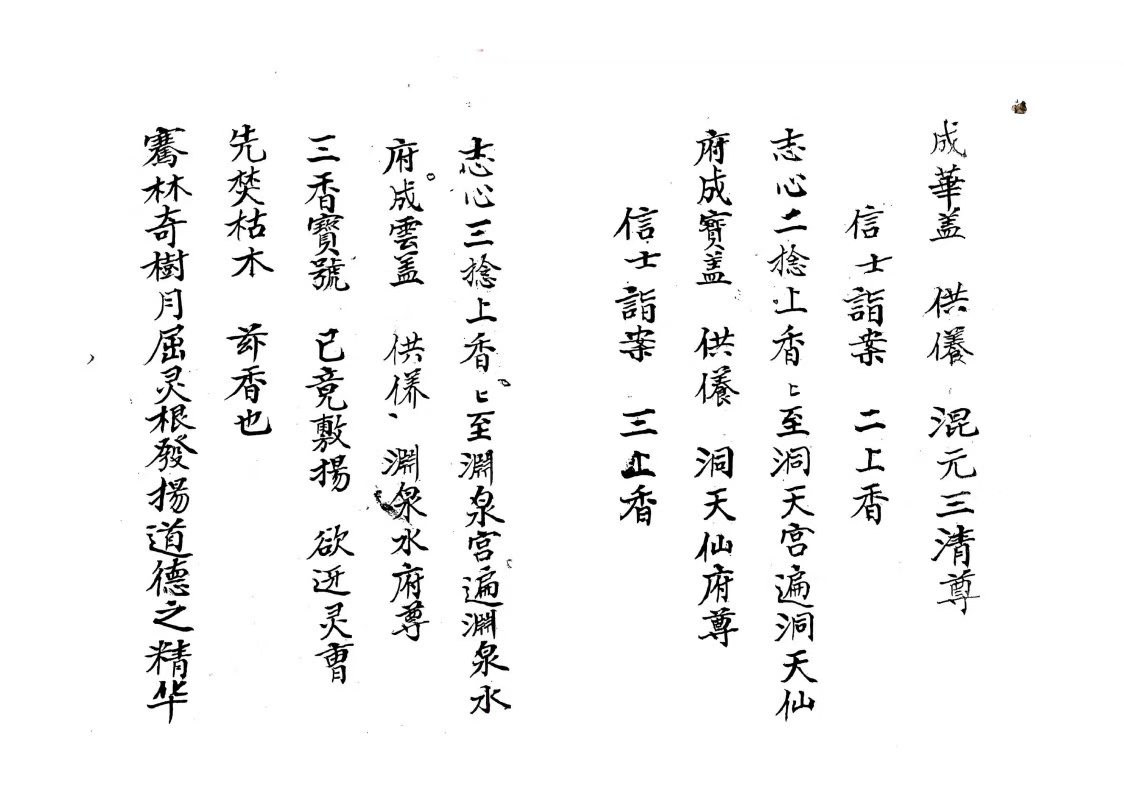 成華盖　供儀　混元三清尊
信士詣案　二上香
志心二捻上香〻至洞天宫遍洞天仙
府成寶盖　供儀　洞天仙府尊
信士詣案　三上香
志心三捻上香〻至淵泉宫遍淵泉水
府成雲盖　供養　淵泉水府尊
三香寶號　已竟敷揚　欲迓灵曹
先焚枯木　兹香也
騫林奇樹月屈灵根發揚道德之精华